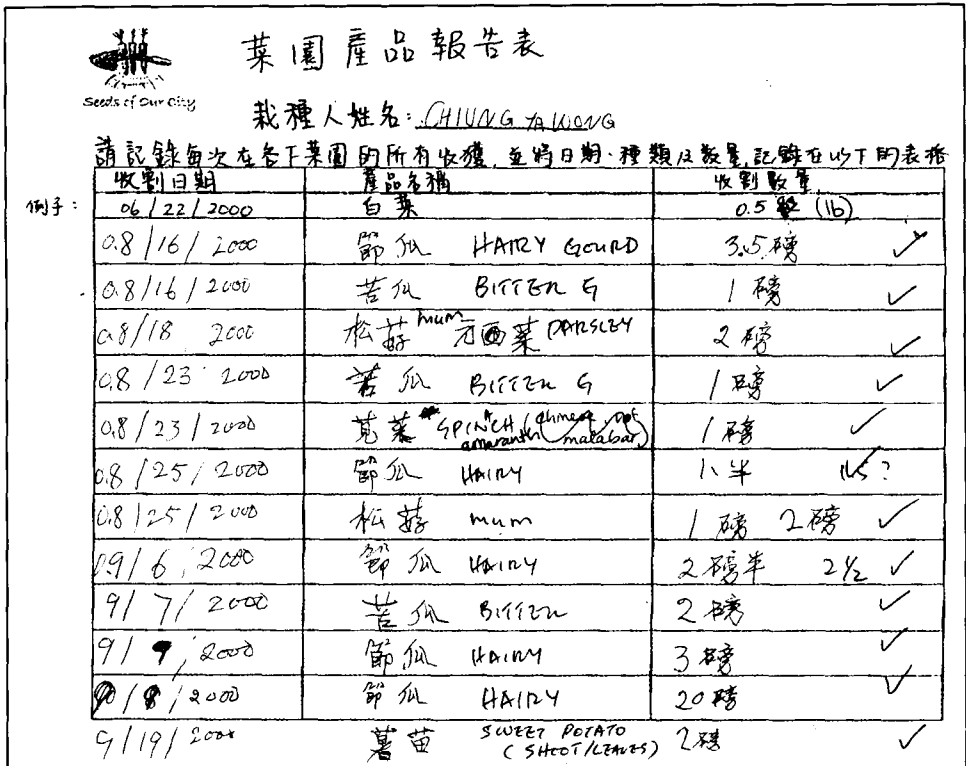 菜園產品報告表
Seeds of Our City
栽種人姓名: CHIUNG YA WONG
請記錄每次在各下菜園的所有收獲,並將日期·種類及數量,記錄在以下的表格
收割日期 產品名稱 收割數量
例子: 06/22/2000 白菜 0.5 (lb)
0.8/16/2000 節瓜 HAIRY GOURD 3.5磅 ✓
0.8/16/2000 苦瓜 BITTER G 1磅 ✓
0.8/18 2000 松菇 mum 芫茜菜 PARSLEY 2磅 ✓
0.8/23 2000 苦瓜 BITTER G 1磅 ✓
0.8/23/2000 莧菜 SPINACH (Chinese amaranth not malabar) 1磅 ✓
0.8/25/2000 節瓜 HAIRY 1半 1.5? ✓
0.8/25/2000 松菇 mum 1磅 2磅 ✓
0.9/6/2000 節瓜 HAIRY 2磅半 2½ ✓
9/7/2000 苦瓜 BITTER 2磅 ✓
9/9/2000 節瓜 HAIRY 3磅 ✓
/8/2000 節瓜 HAIRY 20磅 ✓
9/19/2000 薯苗 SWEET POTATO (SHOOT/LEAVES) 2磅 ✓